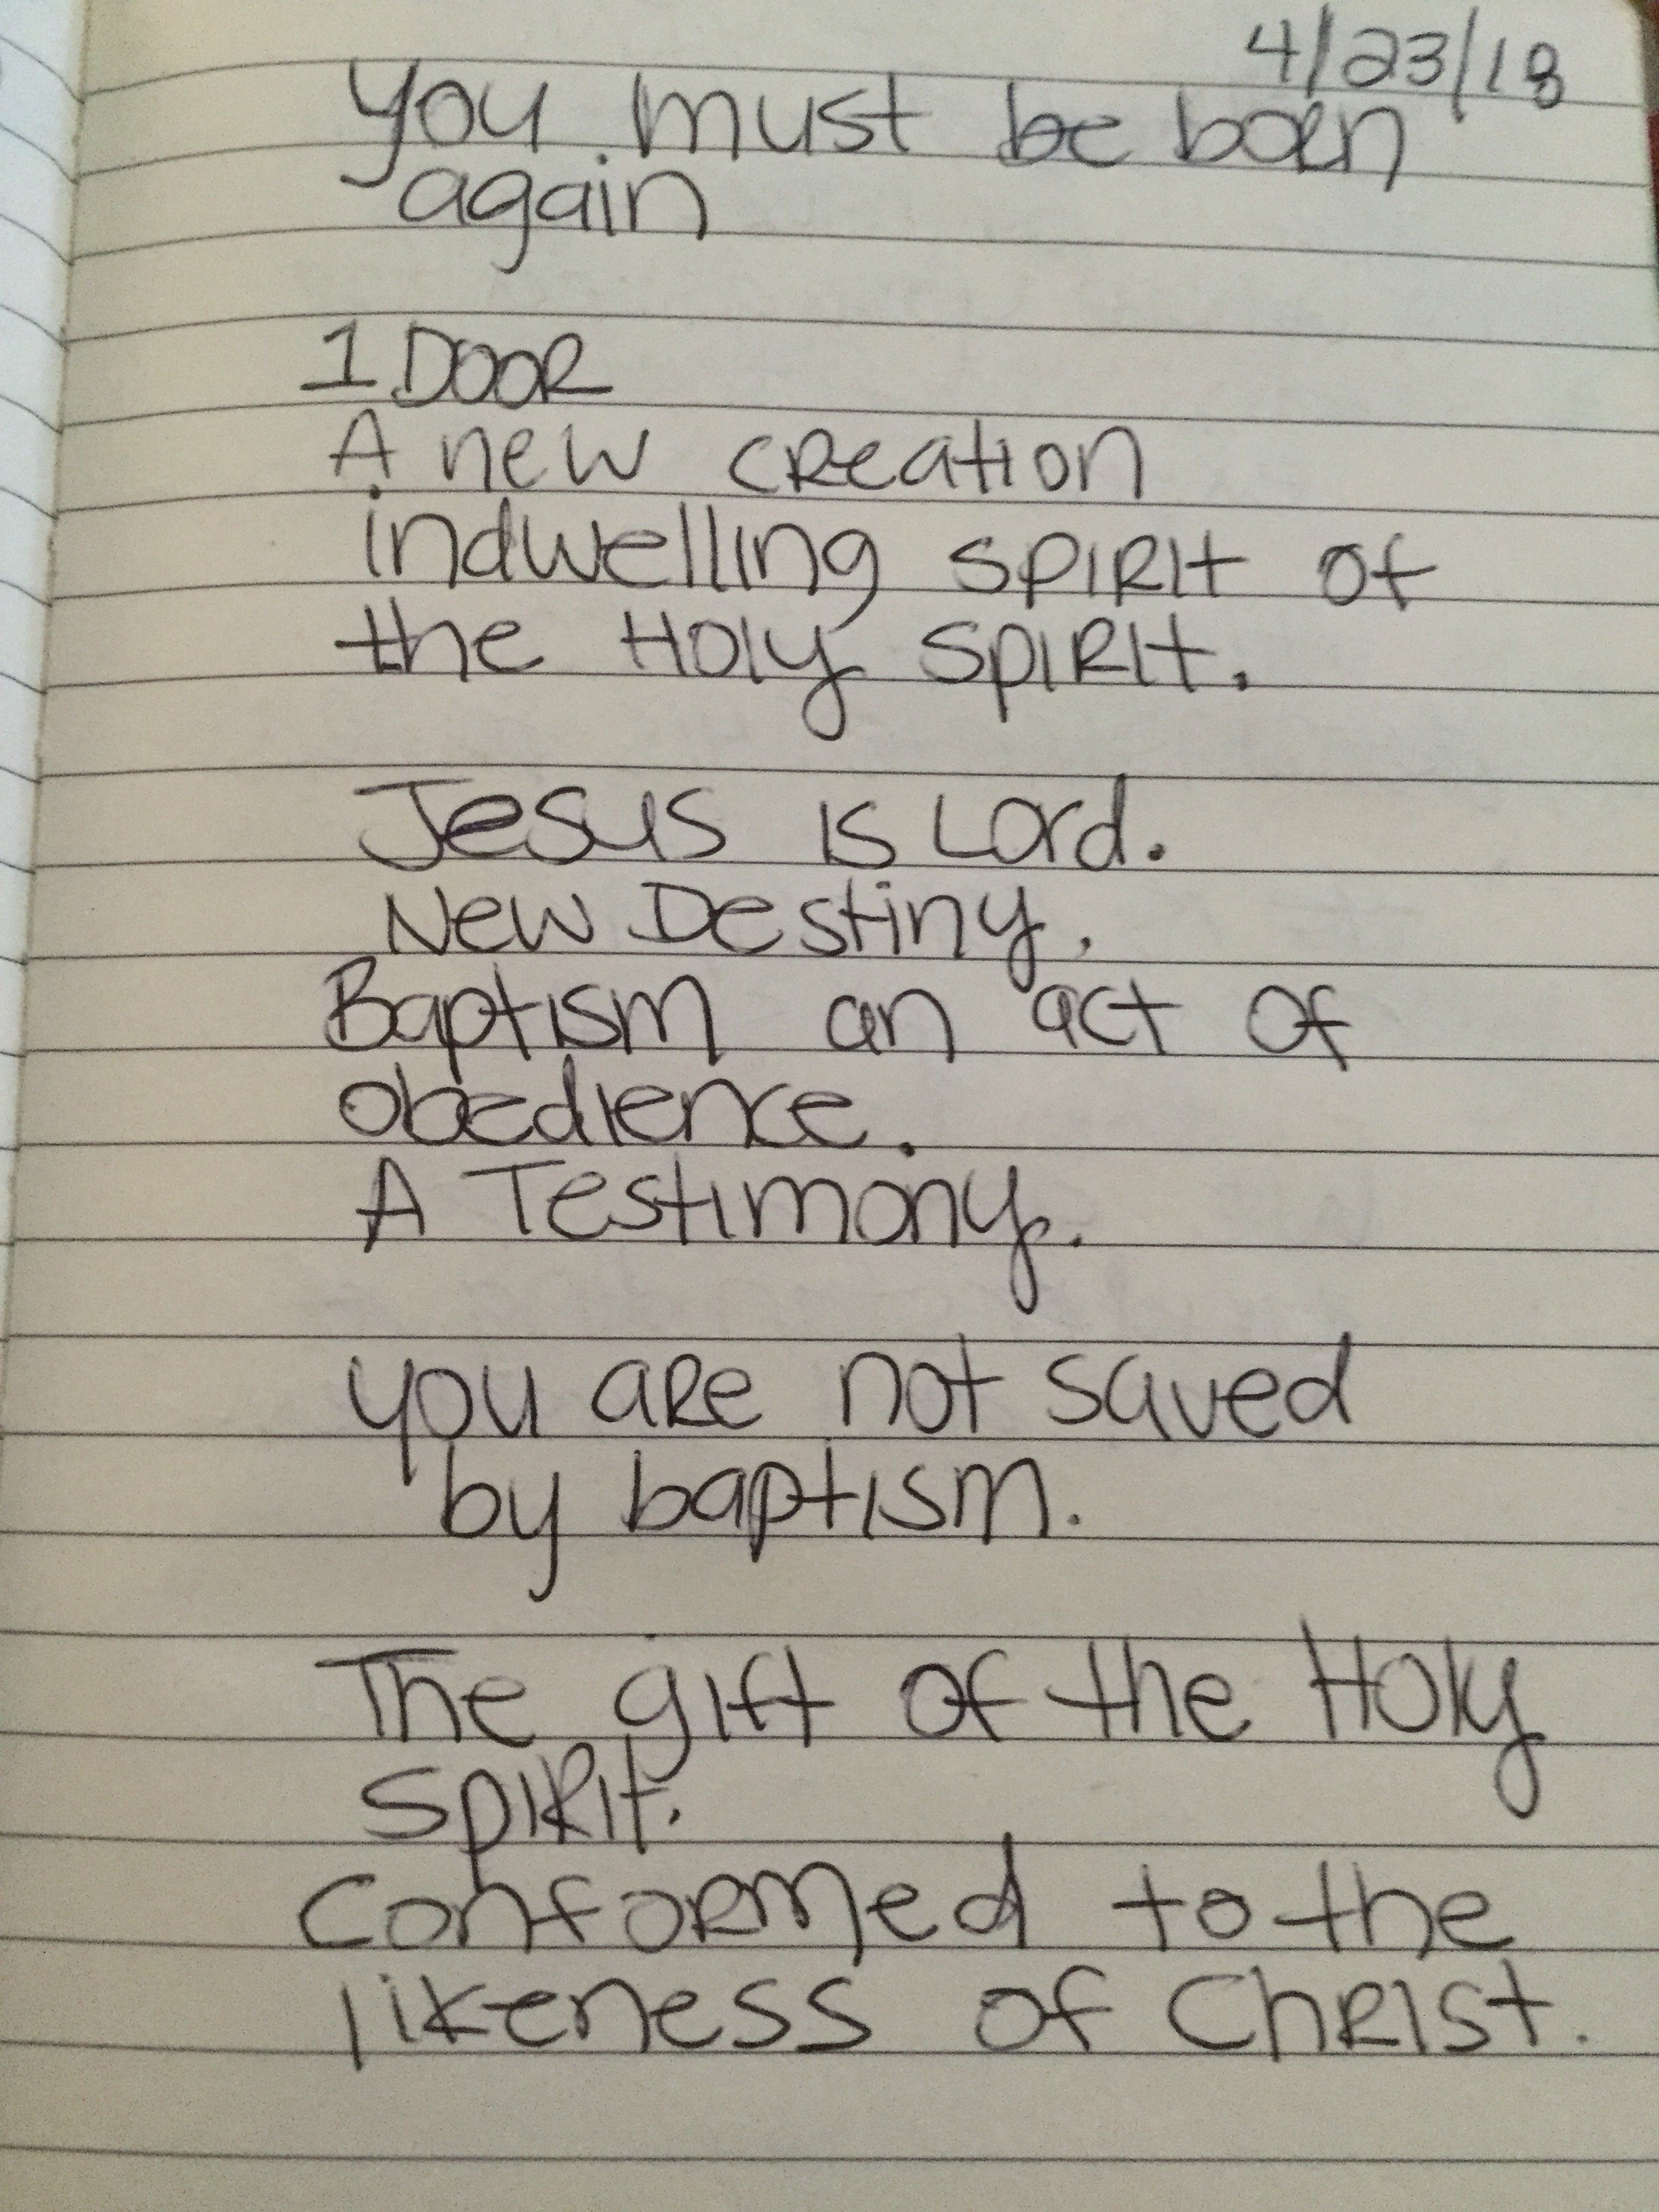 4/23/18
you must be born
again
1 DOOR
A new creation
indwelling spirit of
the Holy spirit.
Jesus is Lord.
New Destiny.
Baptism an act of
obedience.
A Testimony.
you are not saved
by baptism.
The gift of the Holy
spirit.
conformed to the
likeness of Christ.